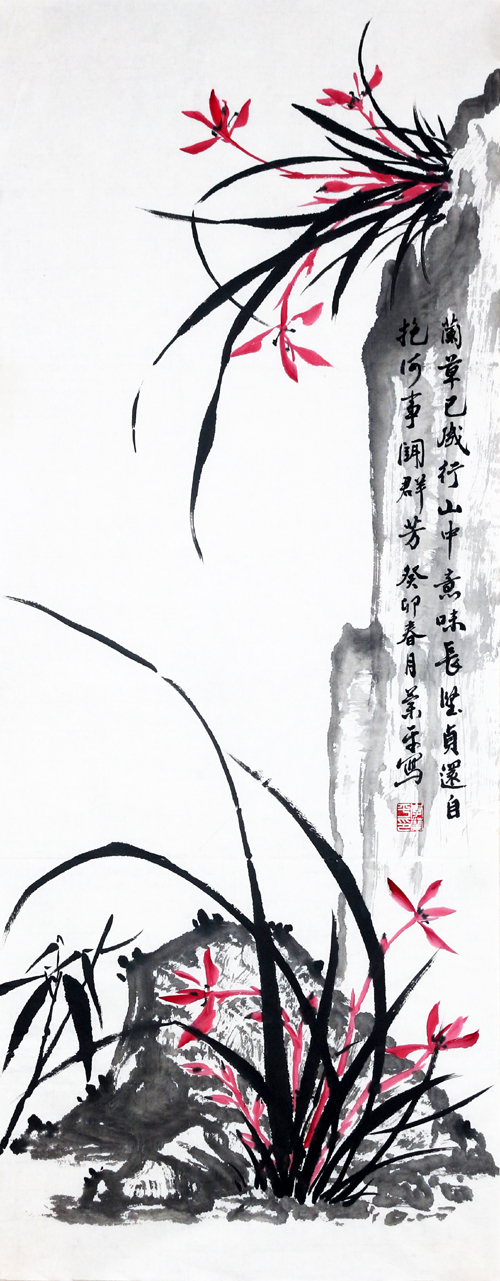 蘭草已成行山中意味長堅貞還自
抱何事鬪群芳癸卯春月平寫